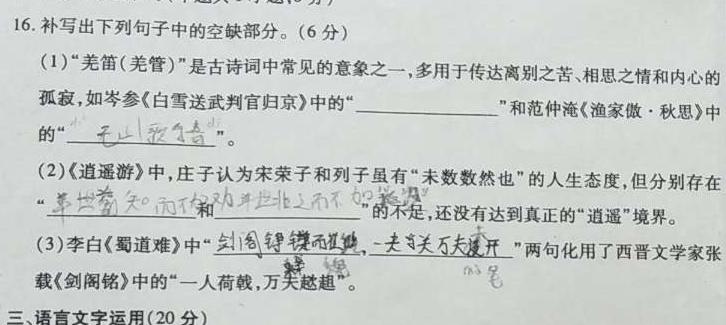 16.补写出下列句子中的空缺部分。(6分)
(1)“羌笛(羌管)”是古诗词中常见的意象之一,多用于传达离别之苦、相思之情和内心的
孤寂,如岑参《白雪送武判官归京》中的“ ”和范仲淹《渔家傲·秋思》中
的“ ”。
(2)《逍遥游》中,庄子认为宋荣子和列子虽有“未数数然也”的人生态度,但分别存在
“ 和 ”的不足,还没有达到真正的“逍遥”境界。
(3)李白《蜀道难》中“剑阁峥嵘而崔嵬,一夫当关万夫莫开”两句化用了西晋文学家张
载《剑阁铭》中的“一人荷戟,万夫趑趄”。
三、语言文字运用(20分)